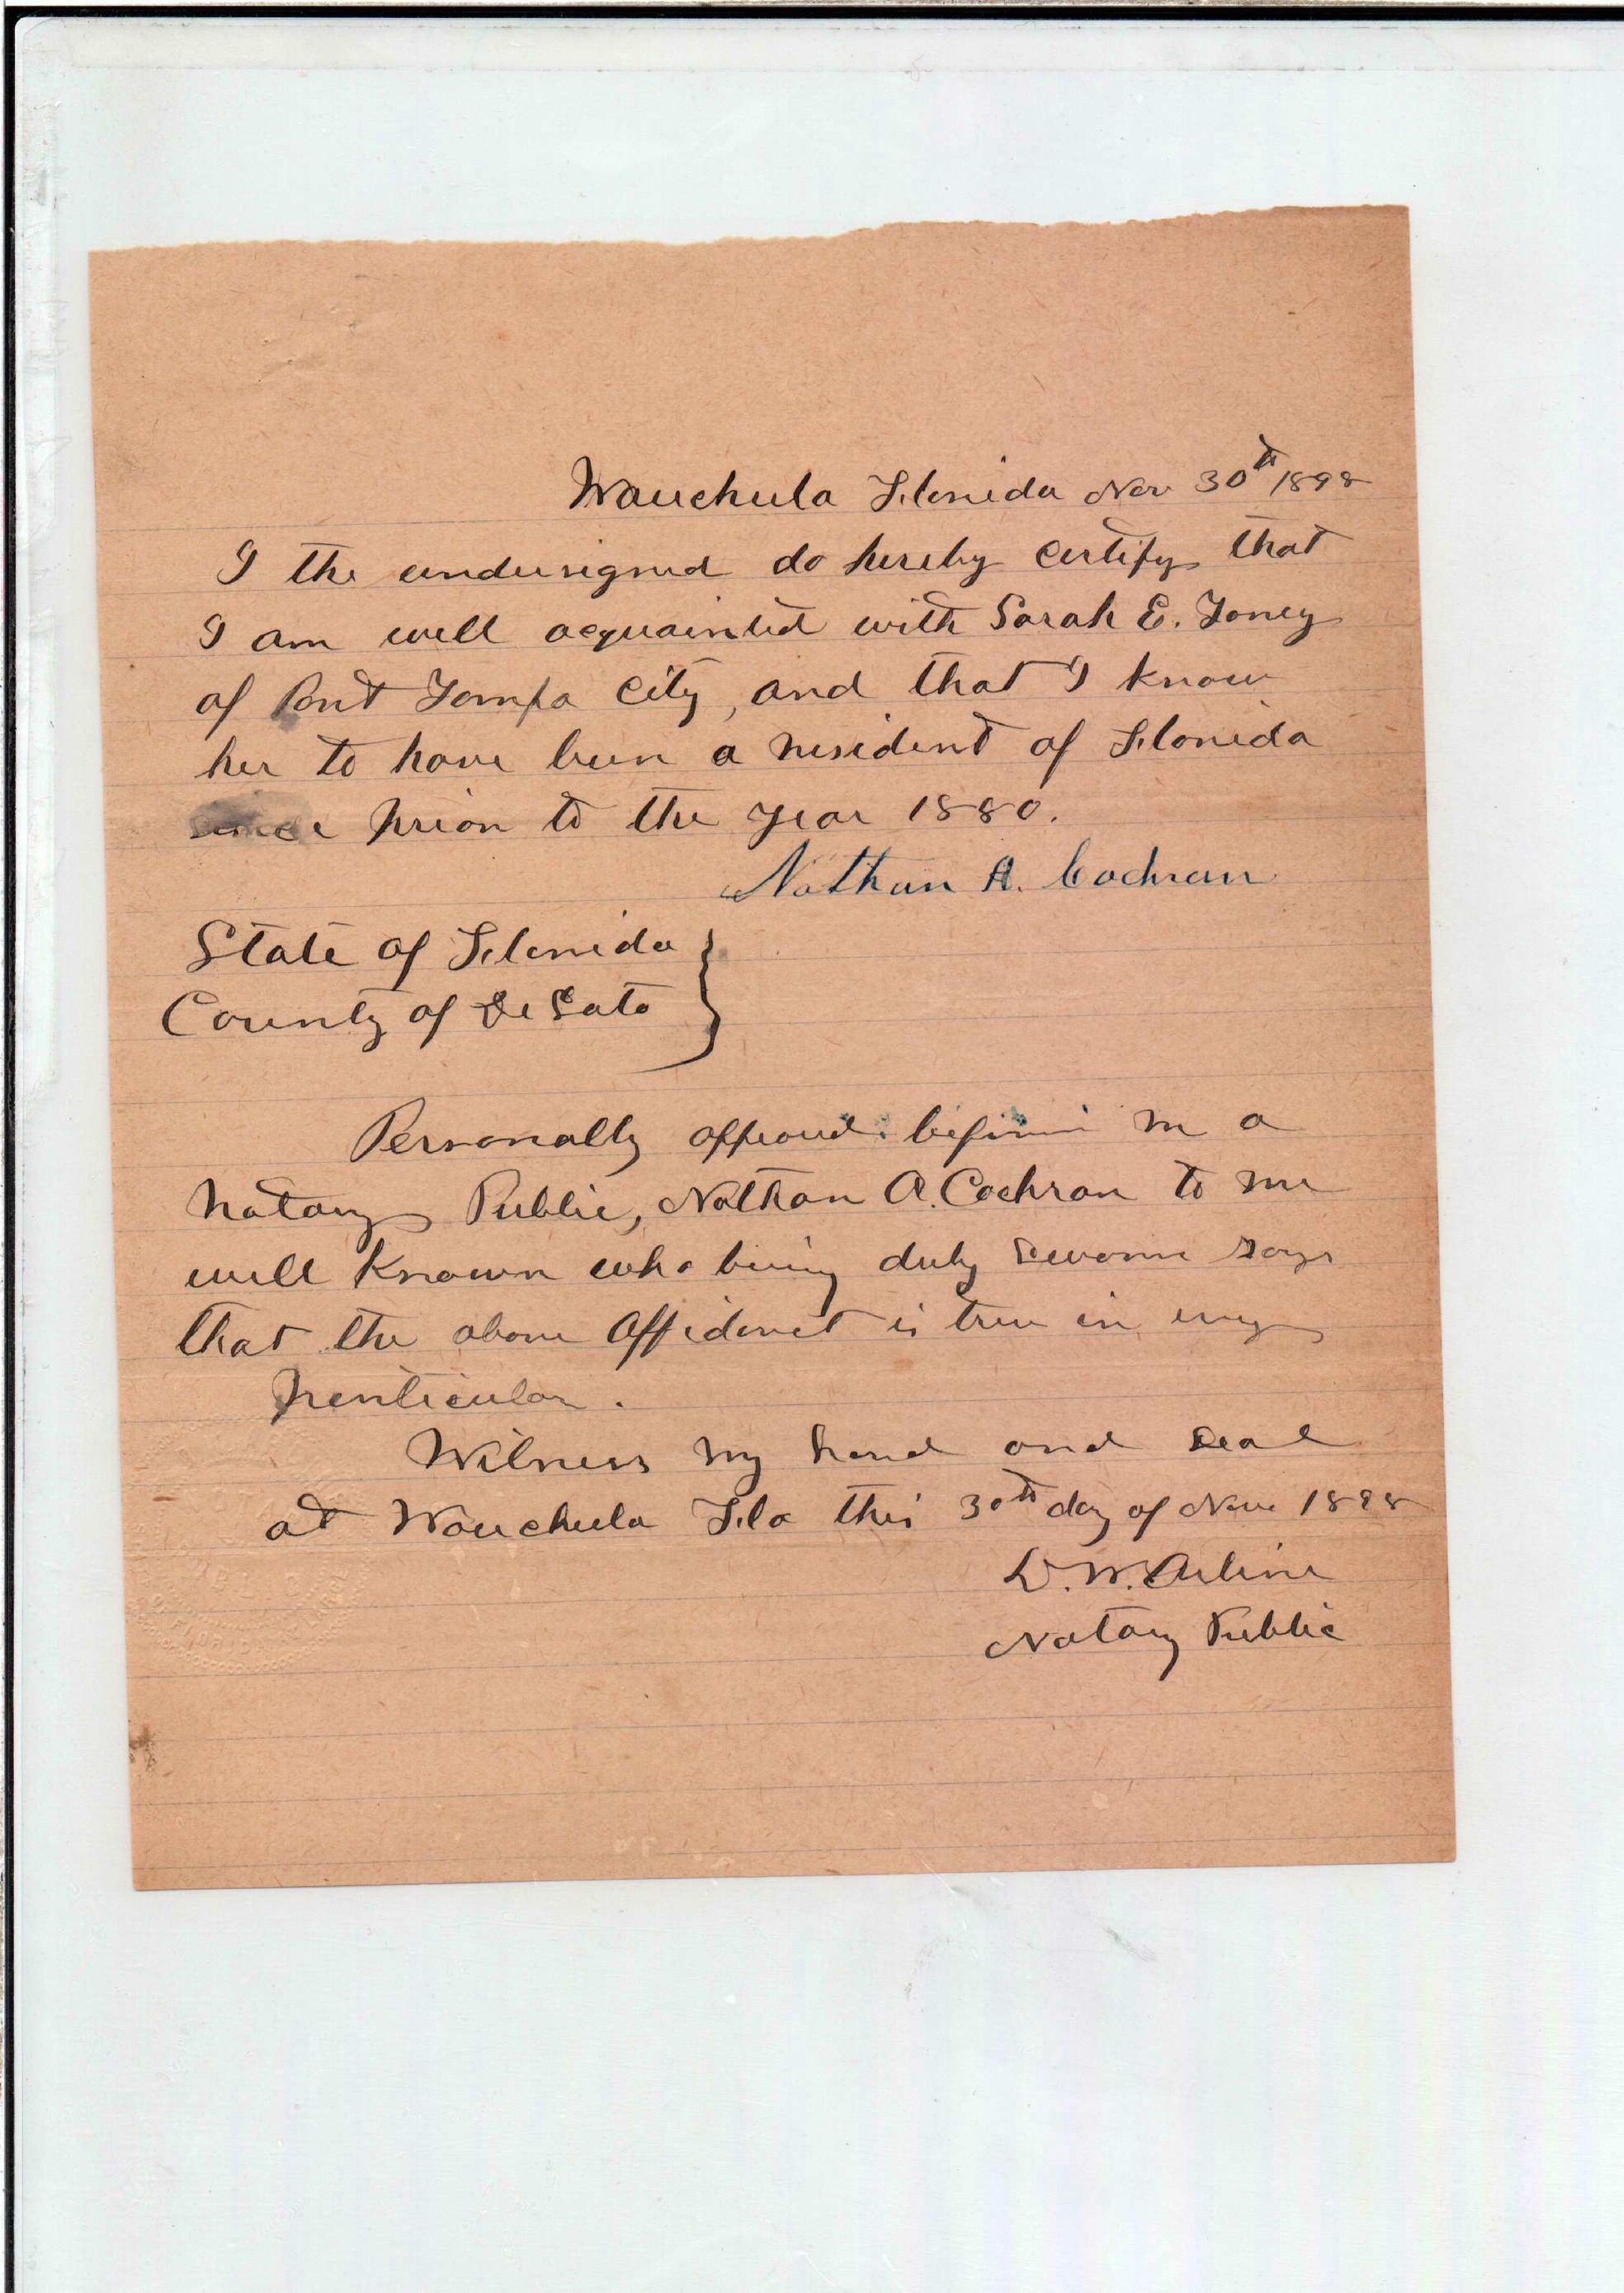 Wauchula Florida Nov 30th 1898
I the undersigned do hereby certify that
I am well acquainted with Sarah E. Toney
of Port Tampa City, and that I know
her to have been a resident of Florida
since prior to the year 1880.
Nathan A. Cochran
State of Florida
County of De Soto
Personally appeared before me a
Notary Public, Nathan A. Cochran to me
well known who being duly sworn says
that the above Affidavit is true in every
particular.
Witness my hand and seal
at Wauchula Fla this 30th day of Nov 1898
D. W. Arline
Notary Public